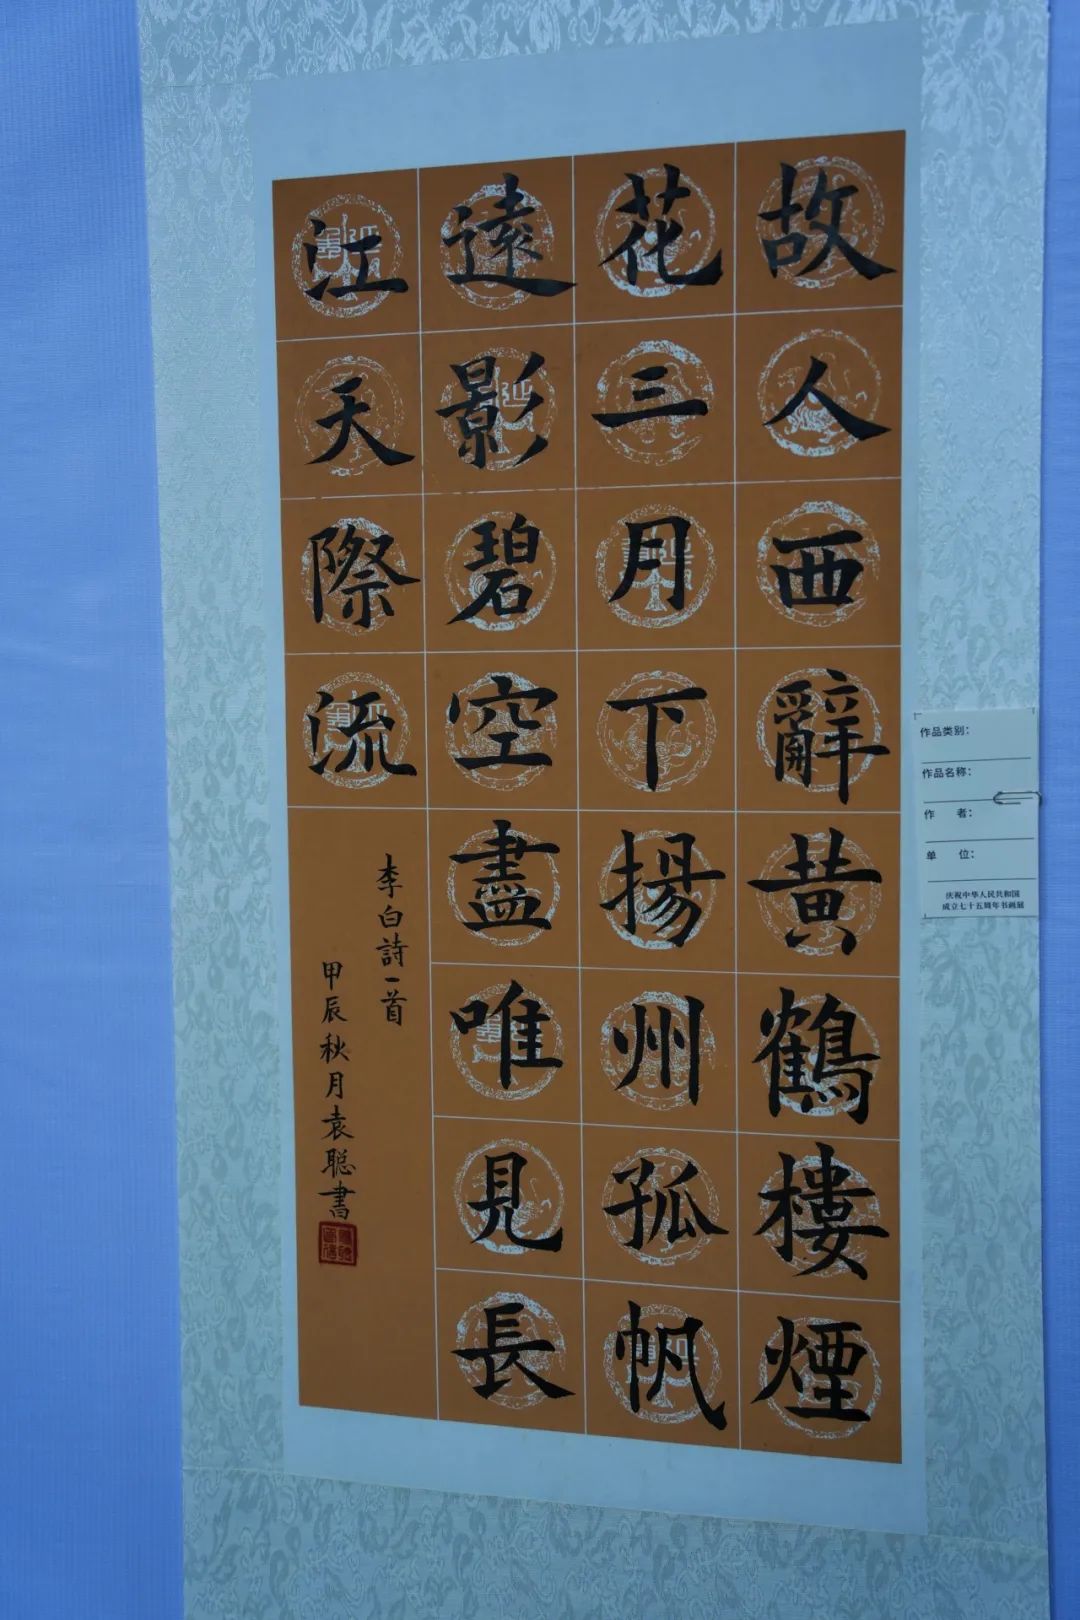 故人西辭黄鶴樓煙
花三月下揚州孤帆
遠影碧空盡唯見長
江天際流
李白詩一首
甲辰秋月袁聪書
作品类别：
作品名称：
作 者：
单 位：
庆祝中华人民共和国
成立七十五周年书画展